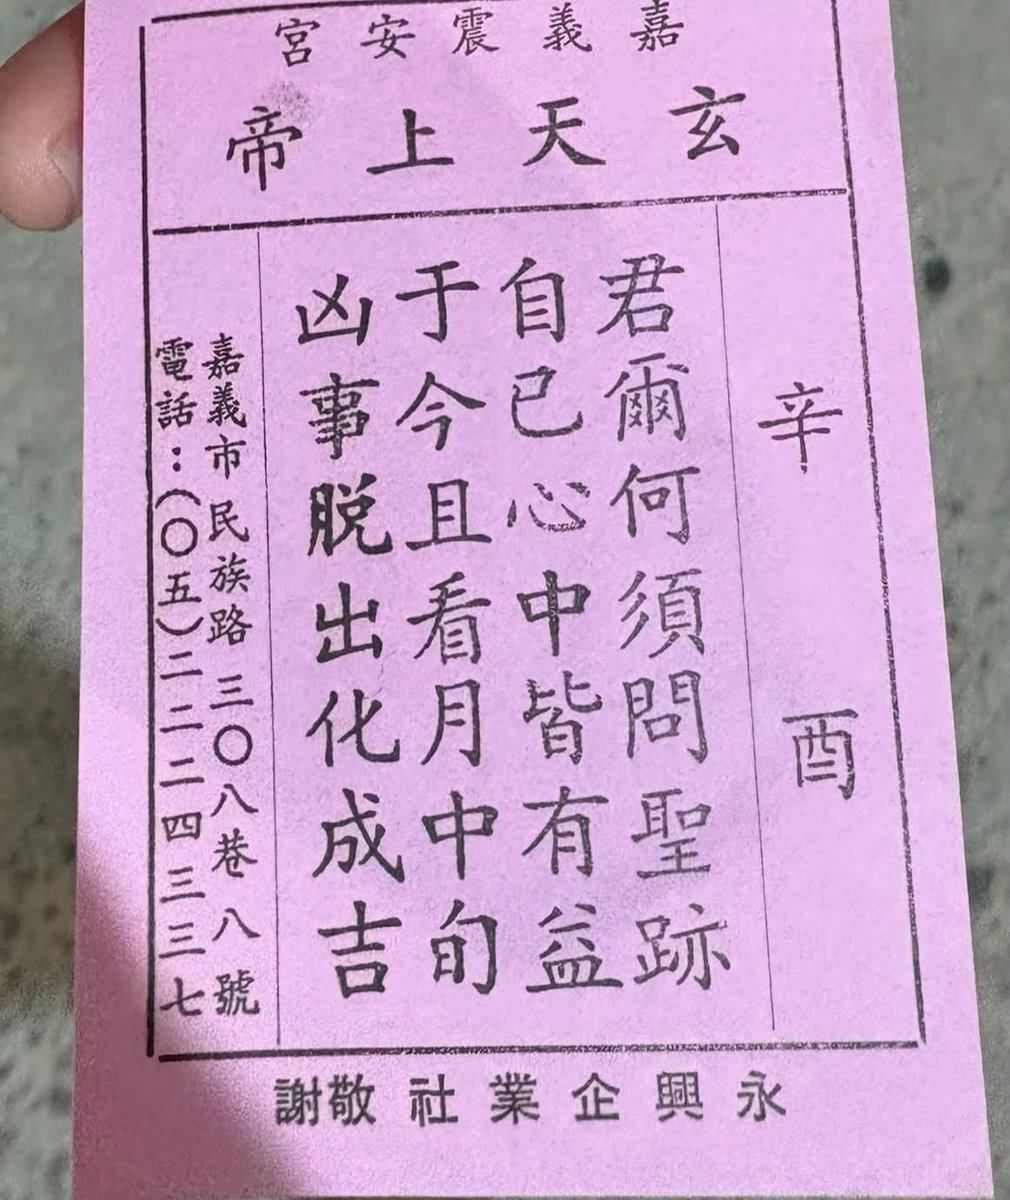 嘉義震安宮
玄天上帝
辛酉
君爾何須問聖跡
自己心中皆有益
于今且看月中旬
凶事脱出化成吉
嘉義市民族路三〇八巷八號
電話：(〇五)二二二四三三七
永興企業社敬謝